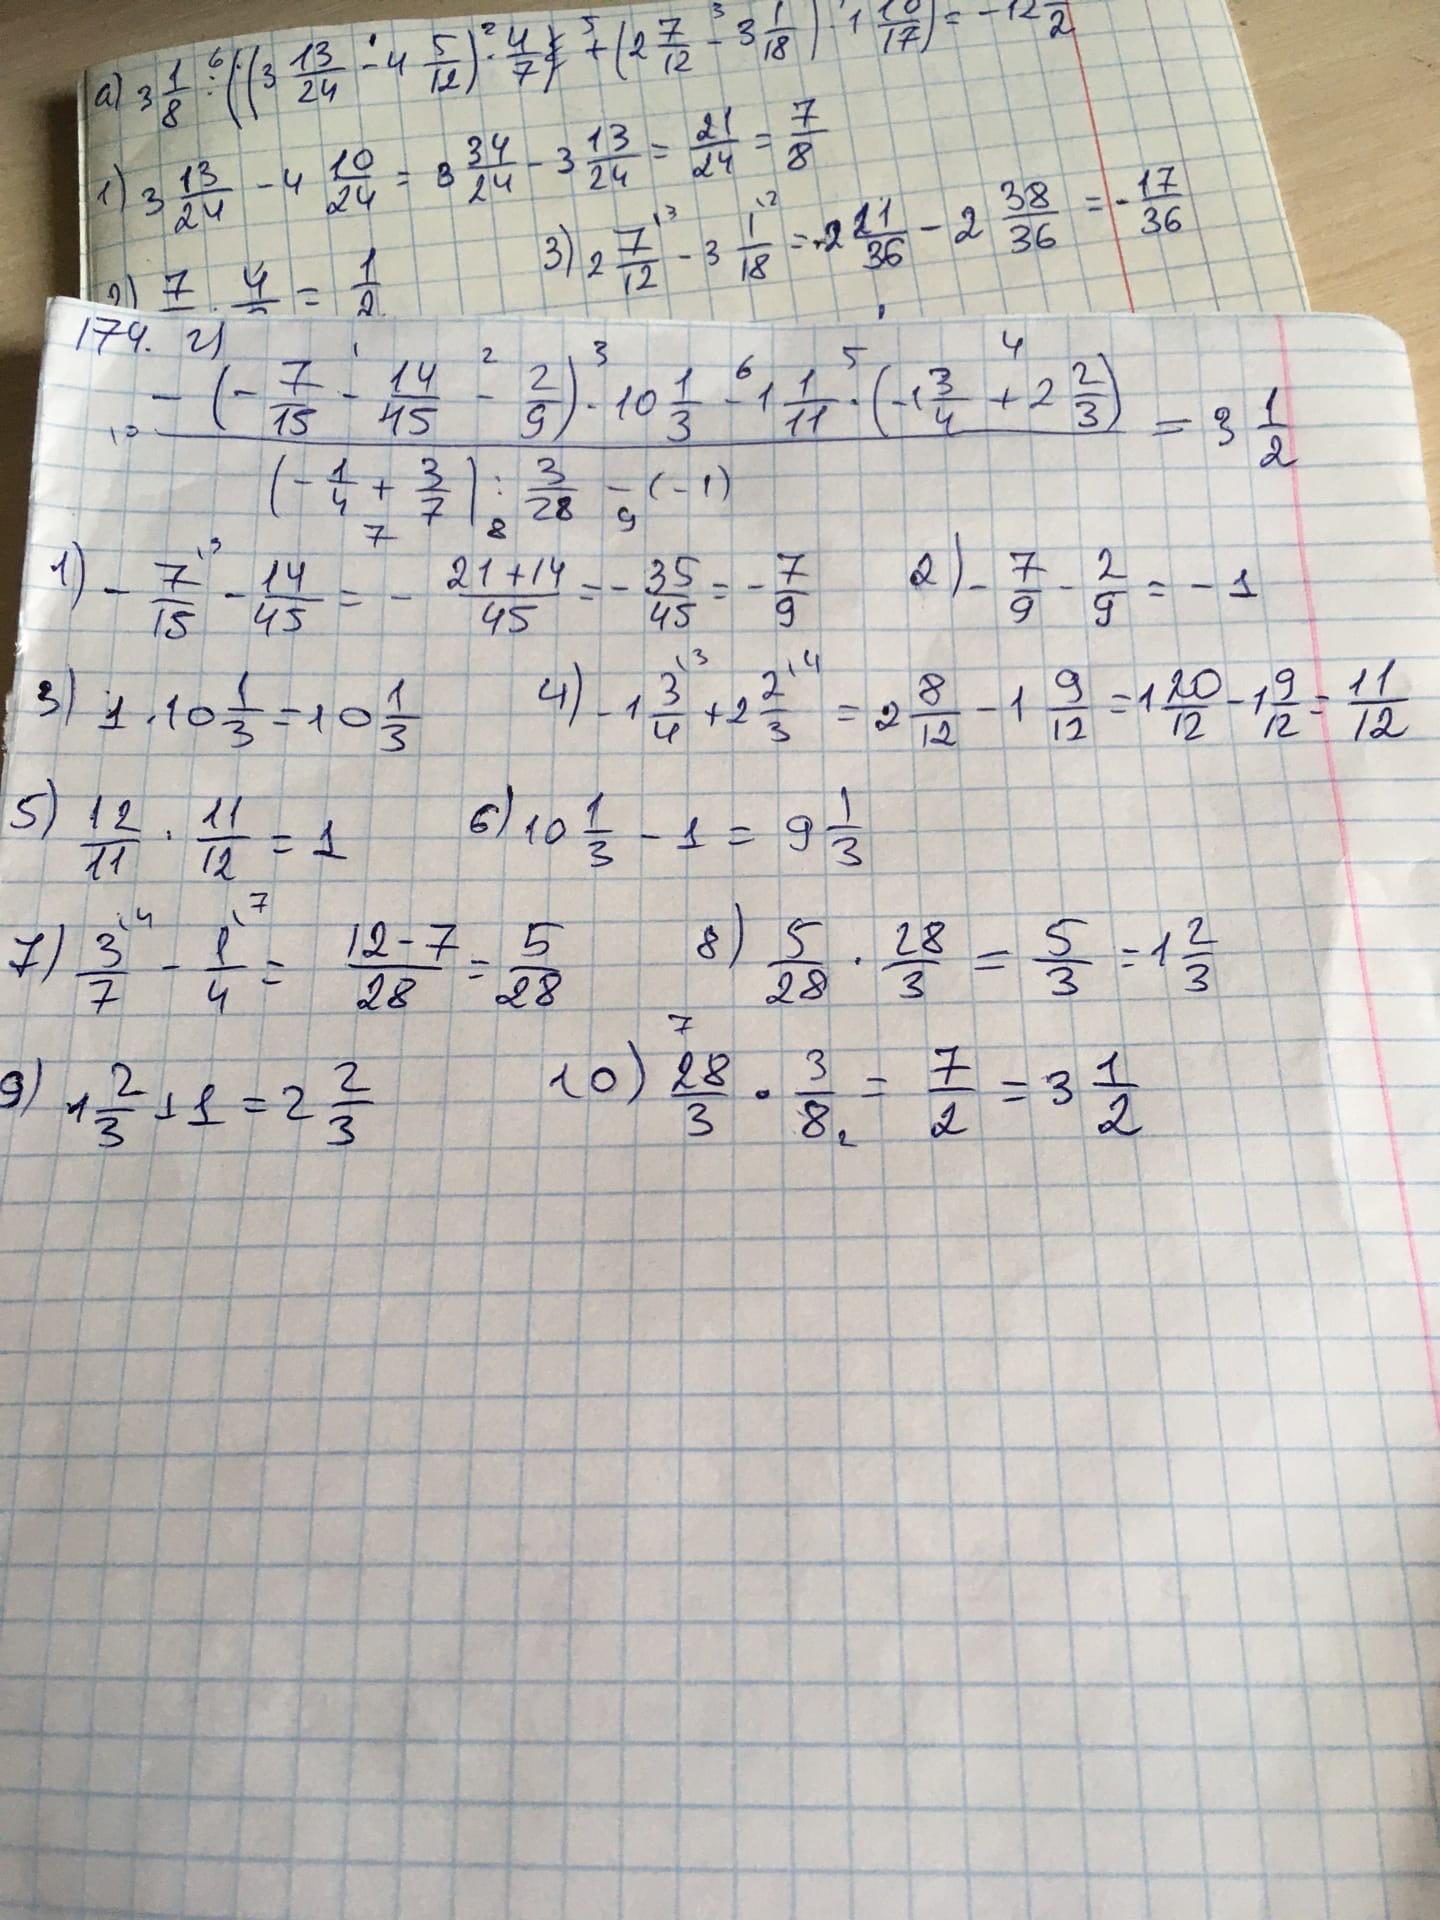 а) 3 1/8 : ((3 13/24 - 4 5/12) · 4/7) + (2 7/12 - 3 1/18) · 1 10/17) = -12 1/2
1) 3 13/24 - 4 10/24 = 3 34/24 - 3 13/24 = 21/24 = 7/8
3) 2 7/12 - 3 1/18 = 2 21/36 - 2 38/36 = - 17/36
2) 7 · 4 = 1/2
174. г)
(-(-7/15 - 14/45 - 2/9) · 10 1/3 - 1 1/11 · (-1 3/4 + 2 2/3)) / ((-1/4 + 3/7) : 3/28 - (-1)) = 3 1/2
1) - 7/15 - 14/45 = - (21+14)/45 = - 35/45 = - 7/9 2) - 7/9 - 2/9 = - 1
3) 1 · 10 1/3 = 10 1/3 4) -1 3/4 + 2 2/3 = 2 8/12 - 1 9/12 = 1 20/12 - 1 9/12 = 11/12
5) 12/11 · 11/12 = 1 6) 10 1/3 - 1 = 9 1/3
7) 3/7 - 1/4 = (12-7)/28 = 5/28 8) 5/28 · 28/3 = 5/3 = 1 2/3
9) 1 2/3 + 1 = 2 2/3 10) 28/3 · 3/8 = 7/2 = 3 1/2